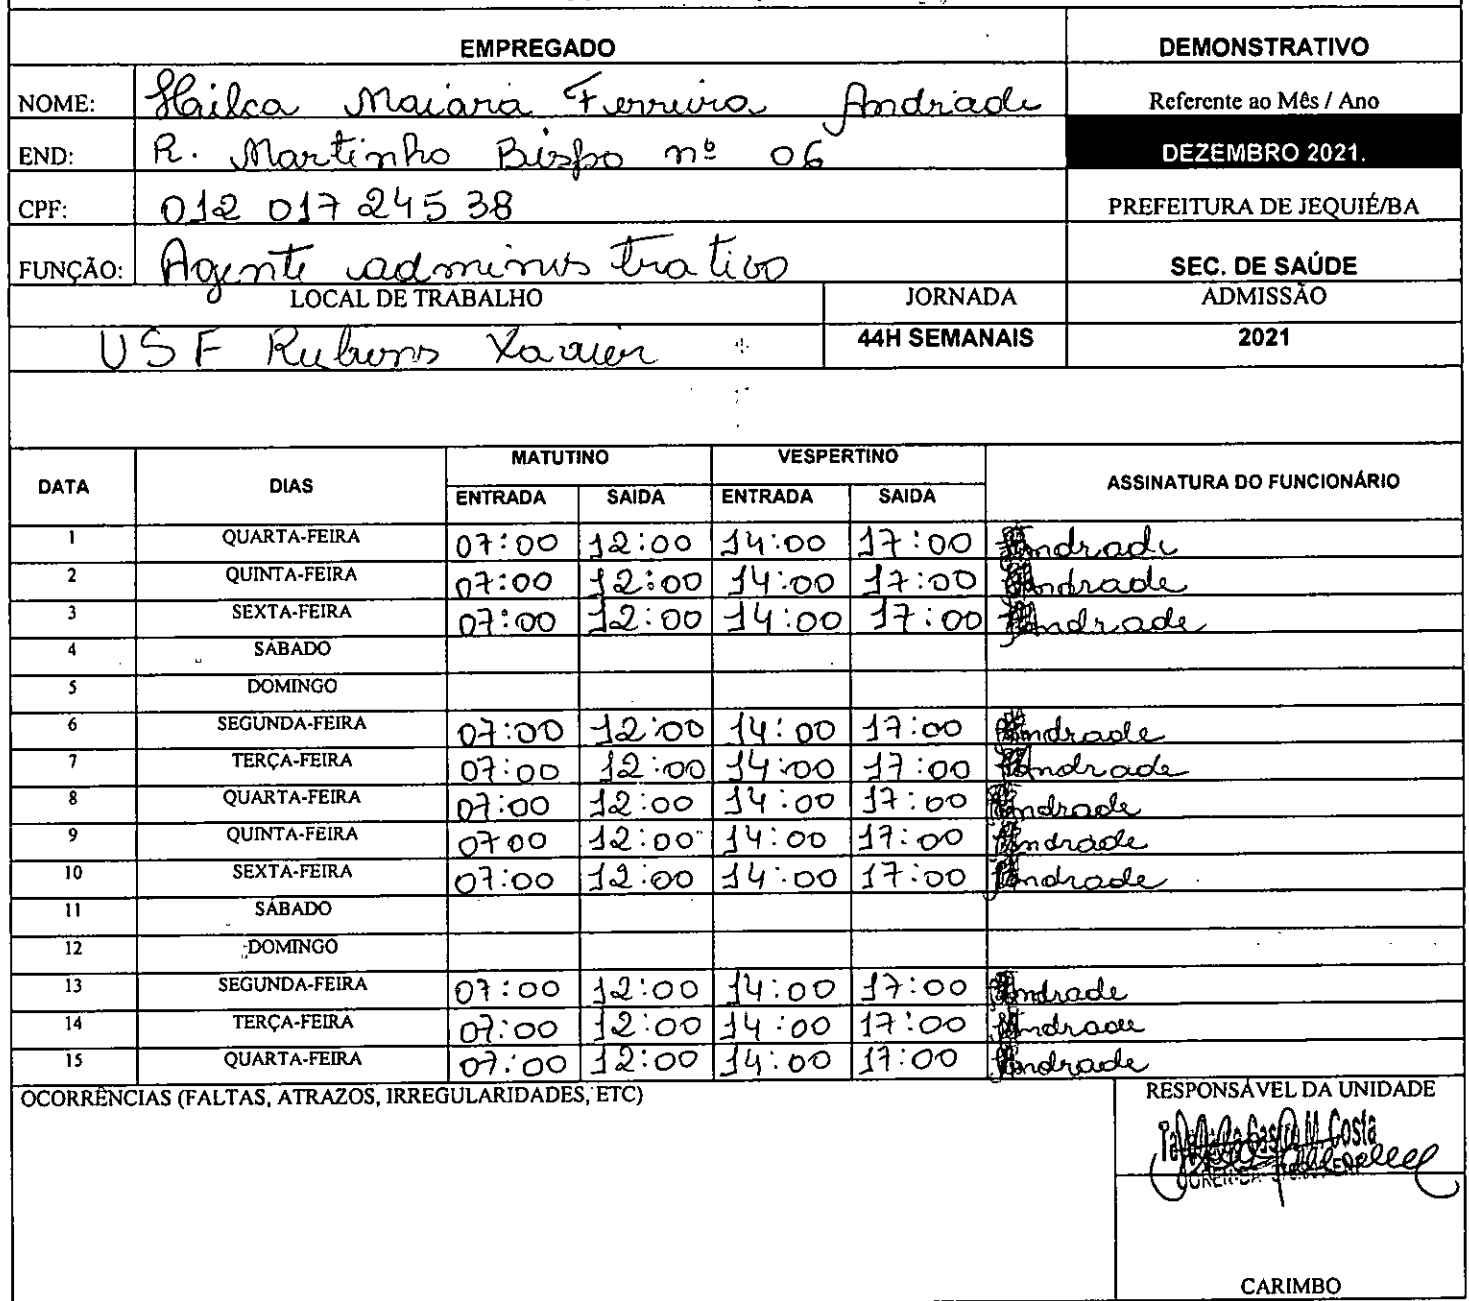 EMPREGADO DEMONSTRATIVO
NOME: Hailca Maiara Ferreira Andrade Referente ao Mês / Ano
END: R. Martinho Bispo nº 06 DEZEMBRO 2021.
CPF: 012 017 245 38 PREFEITURA DE JEQUIÉ/BA
FUNÇÃO: Agente administrativo SEC. DE SAÚDE
LOCAL DE TRABALHO JORNADA ADMISSÃO
USF Rubens Xavier 44H SEMANAIS 2021
DATA DIAS MATUTINO VESPERTINO ASSINATURA DO FUNCIONÁRIO
ENTRADA SAIDA ENTRADA SAIDA
1 QUARTA-FEIRA 07:00 12:00 14:00 17:00 Andrade
2 QUINTA-FEIRA 07:00 12:00 14:00 17:00 Andrade
3 SEXTA-FEIRA 07:00 12:00 14:00 17:00 Andrade
4 SÁBADO
5 DOMINGO
6 SEGUNDA-FEIRA 07:00 12:00 14:00 17:00 Andrade
7 TERÇA-FEIRA 07:00 12:00 14:00 17:00 Andrade
8 QUARTA-FEIRA 07:00 12:00 14:00 17:00 Andrade
9 QUINTA-FEIRA 07 00 12:00 14:00 17:00 Andrade
10 SEXTA-FEIRA 07:00 12:00 14:00 17:00 Andrade
11 SÁBADO
12 DOMINGO
13 SEGUNDA-FEIRA 07:00 12:00 14:00 17:00 Andrade
14 TERÇA-FEIRA 07:00 12:00 14:00 17:00 Andrade
15 QUARTA-FEIRA 07:00 12:00 14:00 17:00 Andrade
OCORRÊNCIAS (FALTAS, ATRAZOS, IRREGULARIDADES, ETC) RESPONSÁVEL DA UNIDADE
M. Costa
CARIMBO